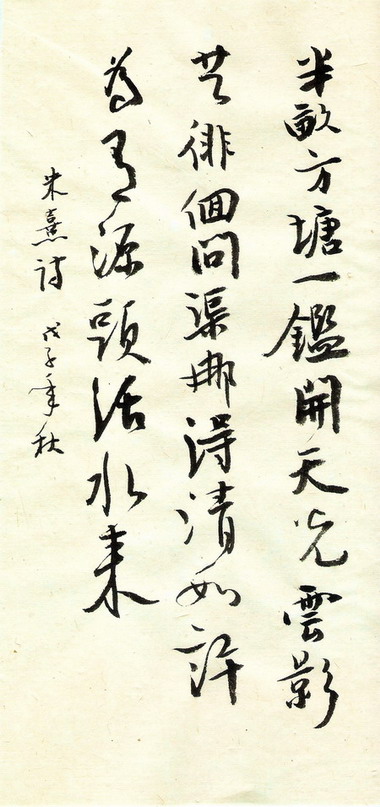 半畝方塘一鑑開天光雲影
共徘徊問渠那得清如許
為有源頭活水來
朱熹詩 戊子年秋